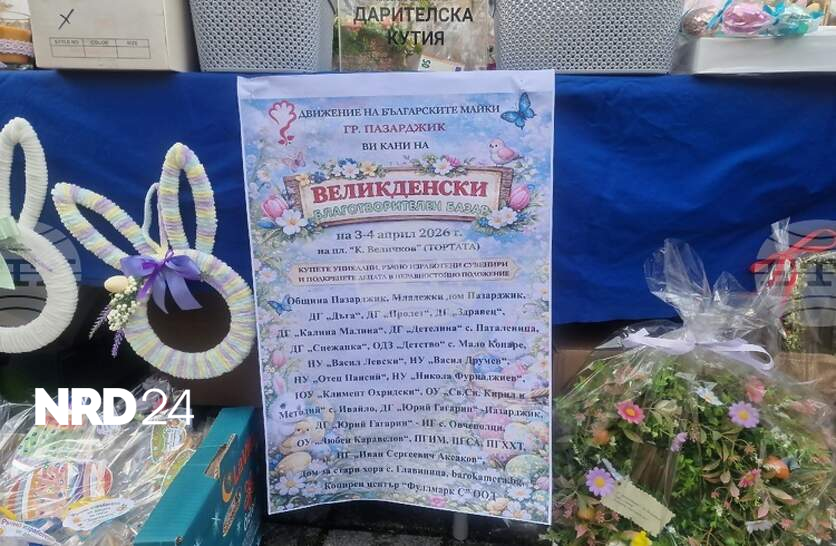 STYLE NO
COLOR
SIZE
ДАРИТЕЛСКА
КУТИЯ
ДВИЖЕНИЕ НА БЪЛГАРСКИТЕ МАЙКИ
ГР. ПАЗАРДЖИК
ВИ КАНИ НА
ВЕЛИКДЕНСКИ
БЛАГОТВОРИТЕЛЕН БАЗАР
на 3-4 април 2026 г.
на пл. "К. Величков" (ТОРТАТА)
КУПЕТЕ УНИКАЛНИ, РЪЧНО ИЗРАБОТЕНИ СУВЕНИРИ
И ПОДКРЕПЕТЕ ДЕЦАТА В НЕРАВНОСТОЙНО ПОЛОЖЕНИЕ
Община Пазарджик, Младежки дом Пазарджик,
ДГ „Дъга", ДГ „Пролет", ДГ „Здравец",
ДГ „Калина Малина", ДГ „Детелина" с. Паталеница,
ДГ „Снежанка", ОДЗ „Детство" с. Мало Конаре,
НУ „Васил Левски", НУ „Васил Друмев",
НУ „Отец Паисий", НУ „Никола Фурнаджиев",
ОУ „Климент Охридски", ОУ „Св.Св. Кирил и
Методий" с. Ивайло, ДГ „Юрий Гагарин" - Пазарджик,
ДГ „Юрий Гагарин" - ИГ с. Овчеполци,
ОУ „Любен Каравелов", ПГИМ, ПГСА, ПГХХТ,
ПГ „Иван Сергеевич Аксаков",
Дом за стари хора с. Главиница, barokamera.bg,
Копирен център "Фуллмарк С" ООД
NRD 24